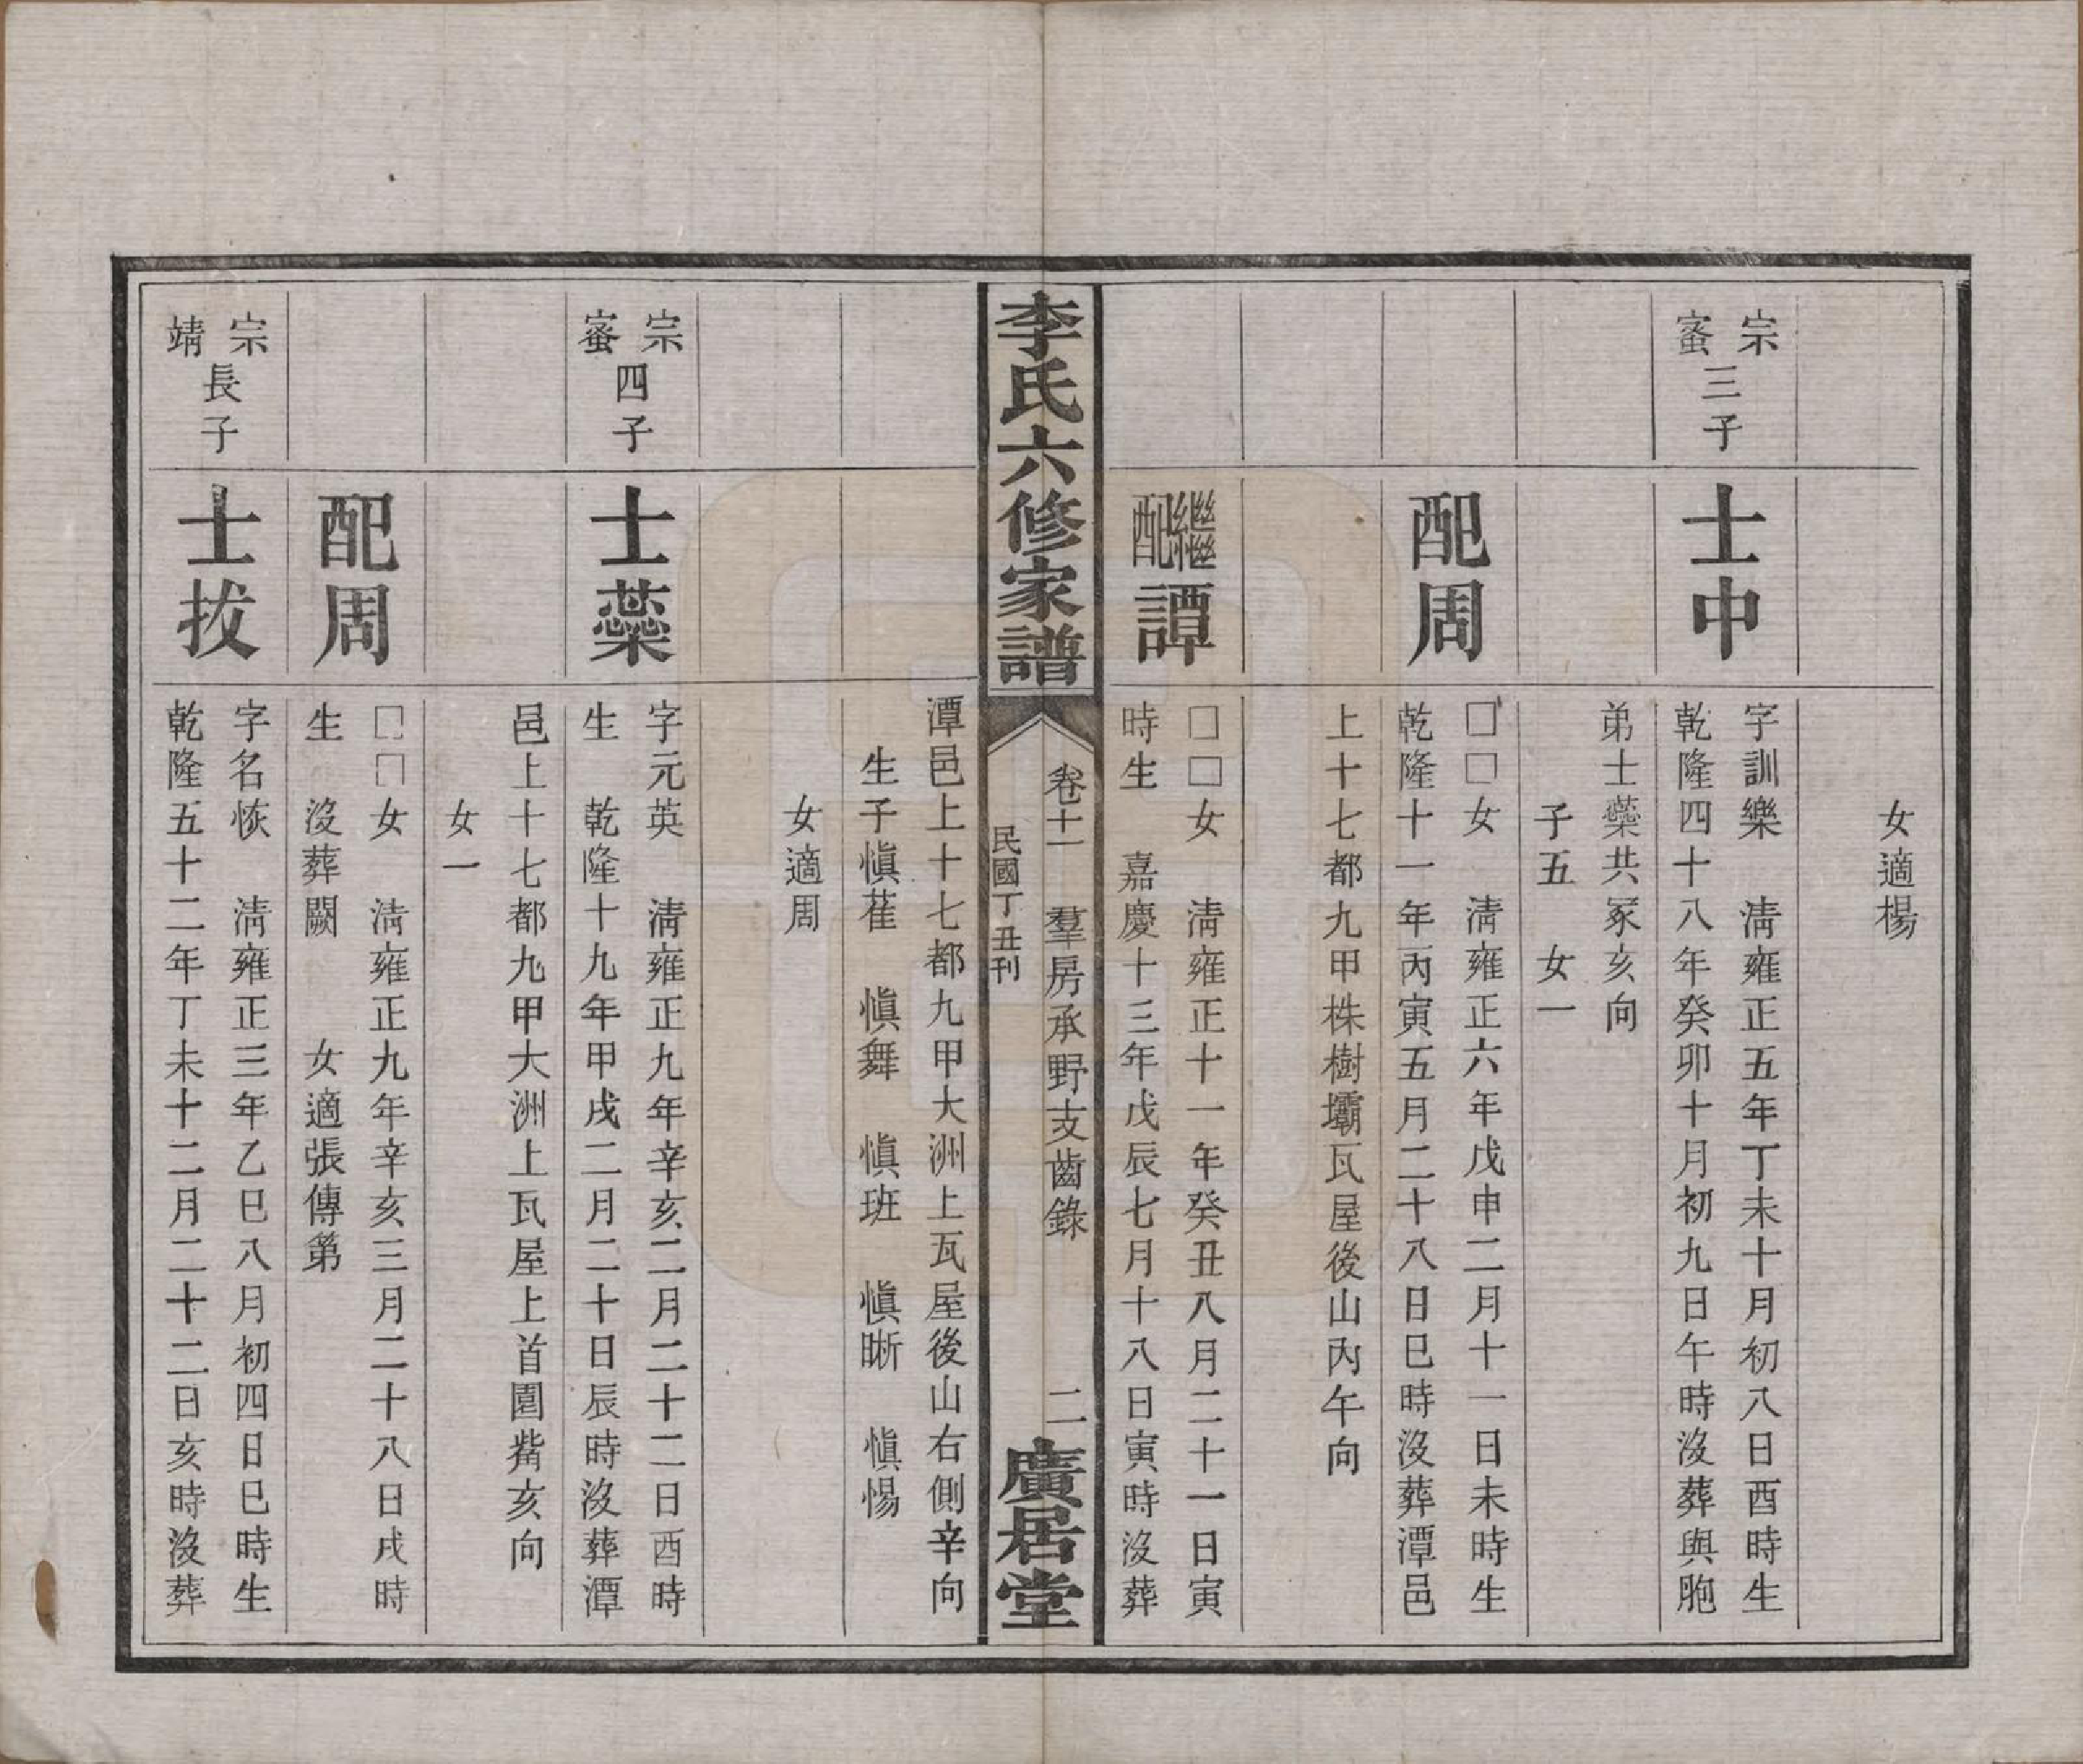 女適楊
宗蜜三子
士中
字訓樂　淸雍正五年丁未十月初八日酉時生
乾隆四十八年癸卯十月初九日午時沒葬與胞
弟士蘂共冢亥向
子五　女一
配周
□□女　淸雍正六年戊申二月十一日未時生
乾隆十一年丙寅五月二十八日巳時沒葬潭邑
上十七都九甲株樹壩瓦屋後山內午向
繼配譚
□□女　淸雍正十一年癸丑八月二十一日寅
時生　嘉慶十三年戊辰七月十八日寅時沒葬
李氏六修家譜
卷十一　羣房承野支齒錄　二
民國丁丑刊
廣居堂
潭邑上十七都九甲大洲上瓦屋後山右側辛向
生子愼萑　愼舞　愼班　愼晣　愼惕
女適周
宗蜜四子
士蘂
字元英　淸雍正九年辛亥二月二十二日酉時
生　乾隆十九年甲戌二月二十日辰時沒葬潭
邑上十七都九甲大洲上瓦屋上首園觜亥向
女一
配周
□□女　淸雍正九年辛亥三月二十八日戌時
生　沒葬闕　女適張傳第
宗靖長子
士拔
字名恢　淸雍正三年乙巳八月初四日巳時生
乾隆五十二年丁未十二月二十二日亥時沒葬